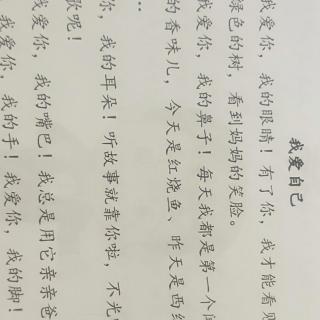 我爱自己
我爱你，我的眼睛！有了你，我才能看见
绿色的树，看到妈妈的笑脸。
我爱你，我的鼻子！每天我都是第一个
的香味儿，今天是红烧鱼、昨天是西红
…
你，我的耳朵！听故事就靠你啦，不光
歌呢！
我爱你，我的嘴巴！我总是用它亲亲爸
，我爱你，我的手！我爱你，我的脚！